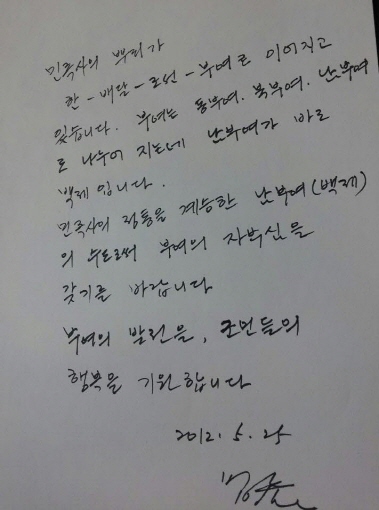 민족사의 뿌리가
한-배달-조선-부여로 이어지고
있습니다. 부여는 동부여. 북부여. 난부여
로 나누어 지는데 난부여가 바로
백제입니다.
민족사의 정통을 계승한 난부여(백제)
의 수도로써 부여의 자부심을
갖기를 바랍니다
부여의 발전을, 군민들의
행복을 기원합니다
2012. 5. 25